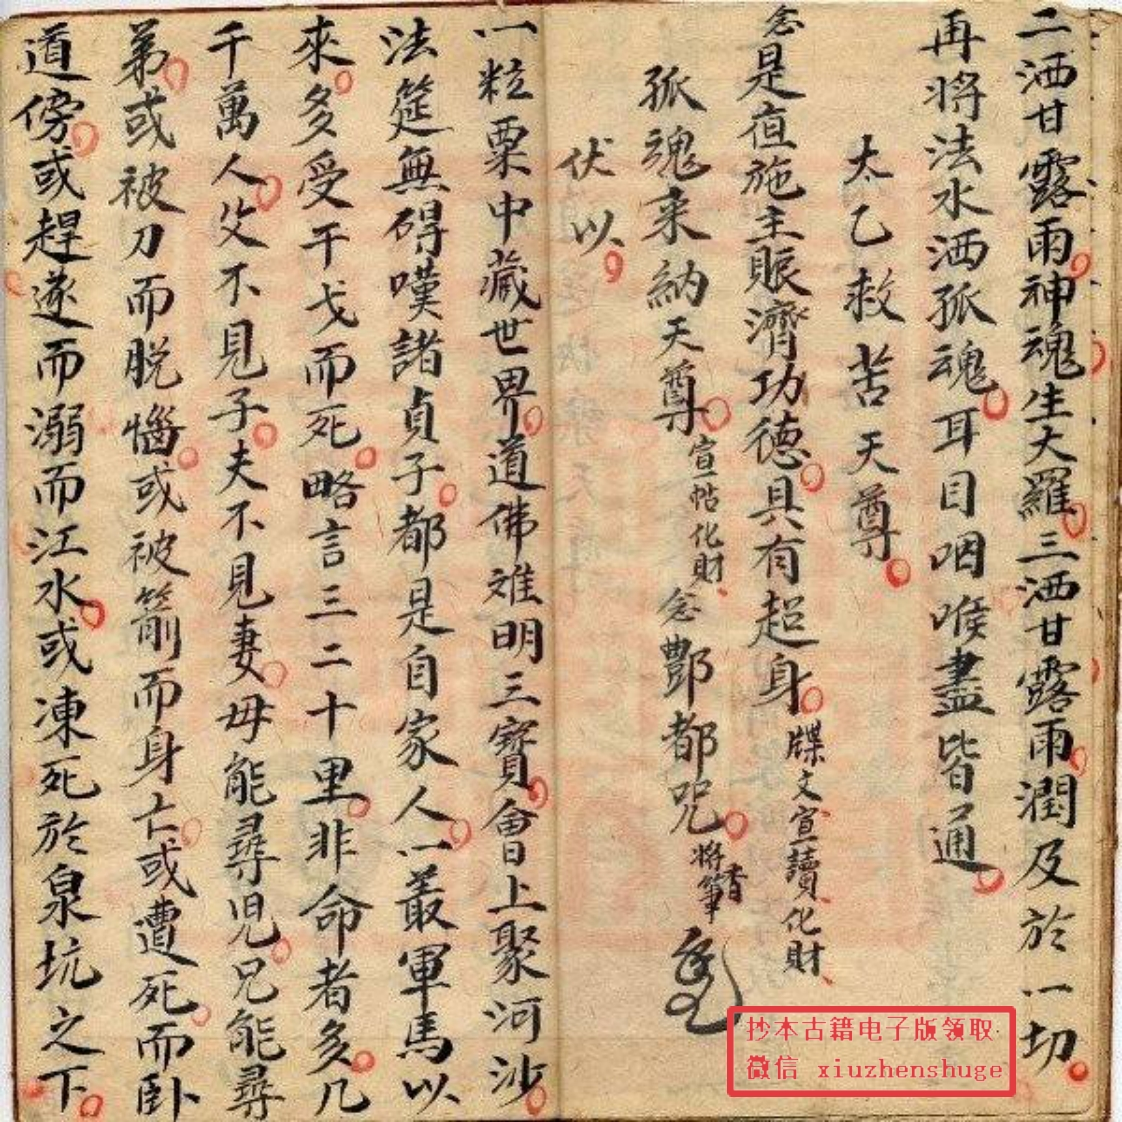 二洒甘露雨神魂生大羅三洒甘露雨潤及於一切
再將法水洒孤魂耳目咽喉盡皆通
太乙救苦天尊
念是夜施主賑濟功德具有超身牒文宣讀化財
孤魂来納天尊宣帖化財念酆都咒將香筆
伏以
一粒粟中藏世界道佛难明三寳會上聚河沙
法筵無碍嘆諸貞子都是自家人一叢軍馬以
來多受干戈而死略言三二十里非命者多几
千萬人父不見子夫不見妻母能尋児兄能尋
弟或被刀而脱惱或被箭而身亡或遭死而卧
道傍或趕逐而溺而江水或凍死於泉坑之下
抄本古籍电子版领取
微信 xiuzhenshuge